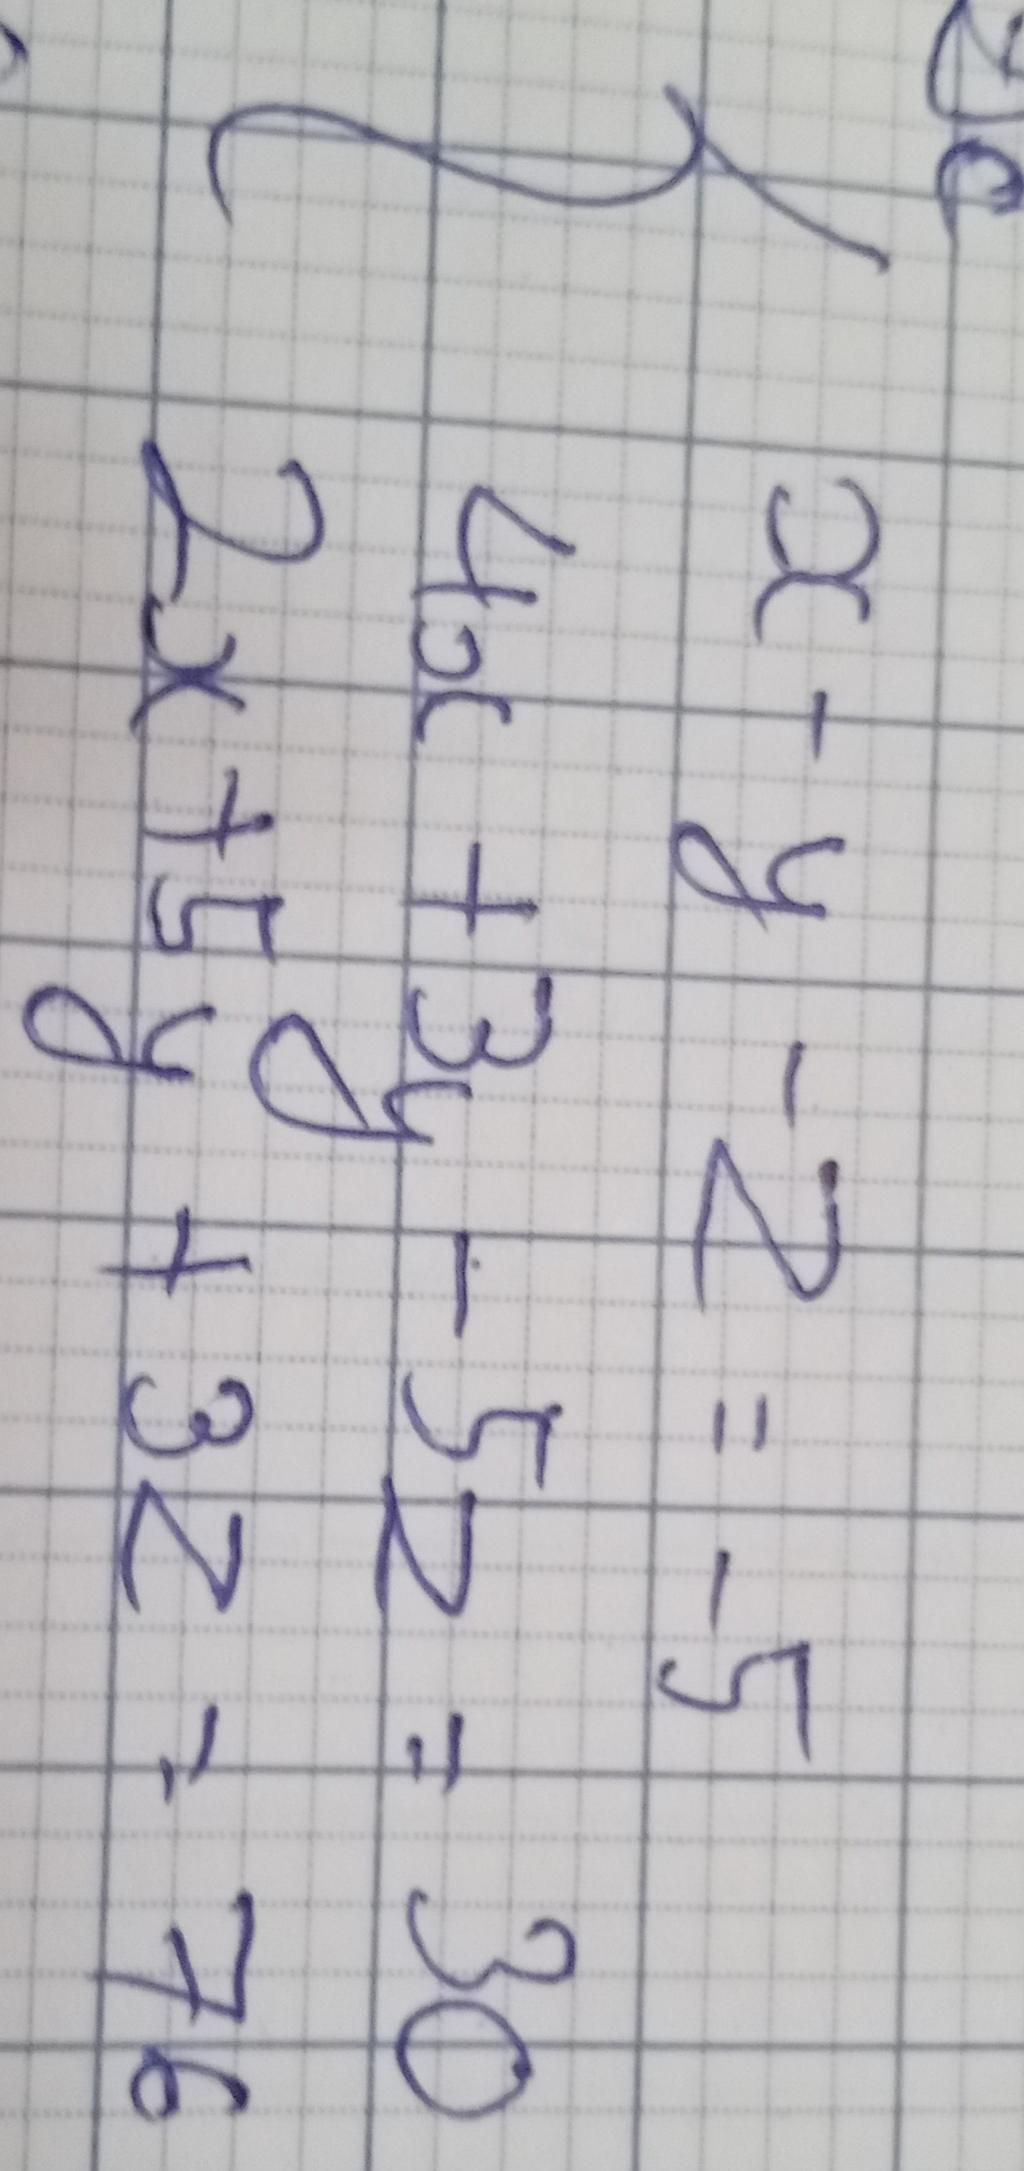 x - y - z = -5
4x + 3y - 5z = 30
2x + 5y + 3z = 76